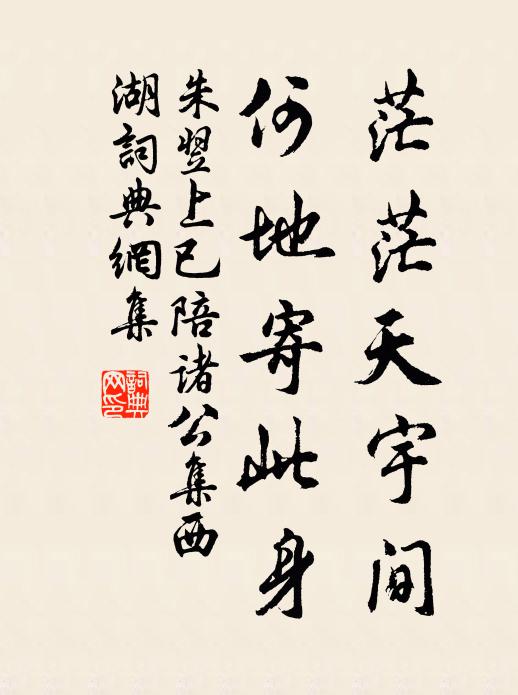 茫茫天宇间
何地寄此身
朱翌上巳陪诸公集西
湖詞典網集
詞典
网印